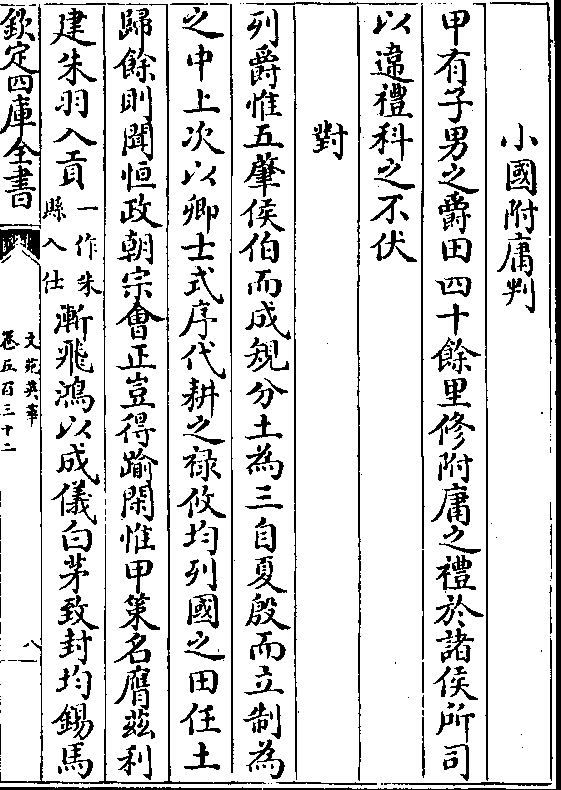 小國附庸判
甲有子男之爵田四十餘里修附庸之禮於諸侯所司
以違禮科之不伏
對
列爵惟五肇侯伯而成規分土為三自夏殷而立制為
之中上次以卿士式序代耕之禄攸均列國之田任土
歸餘則聞恒政朝宗會正豈得踰閑惟甲策名膺茲利
建朱羽入貢一作朱縣入仕漸飛鴻以成儀白茅致封均錫馬
欽定四庫全書
文苑英華
卷五百三十二
八